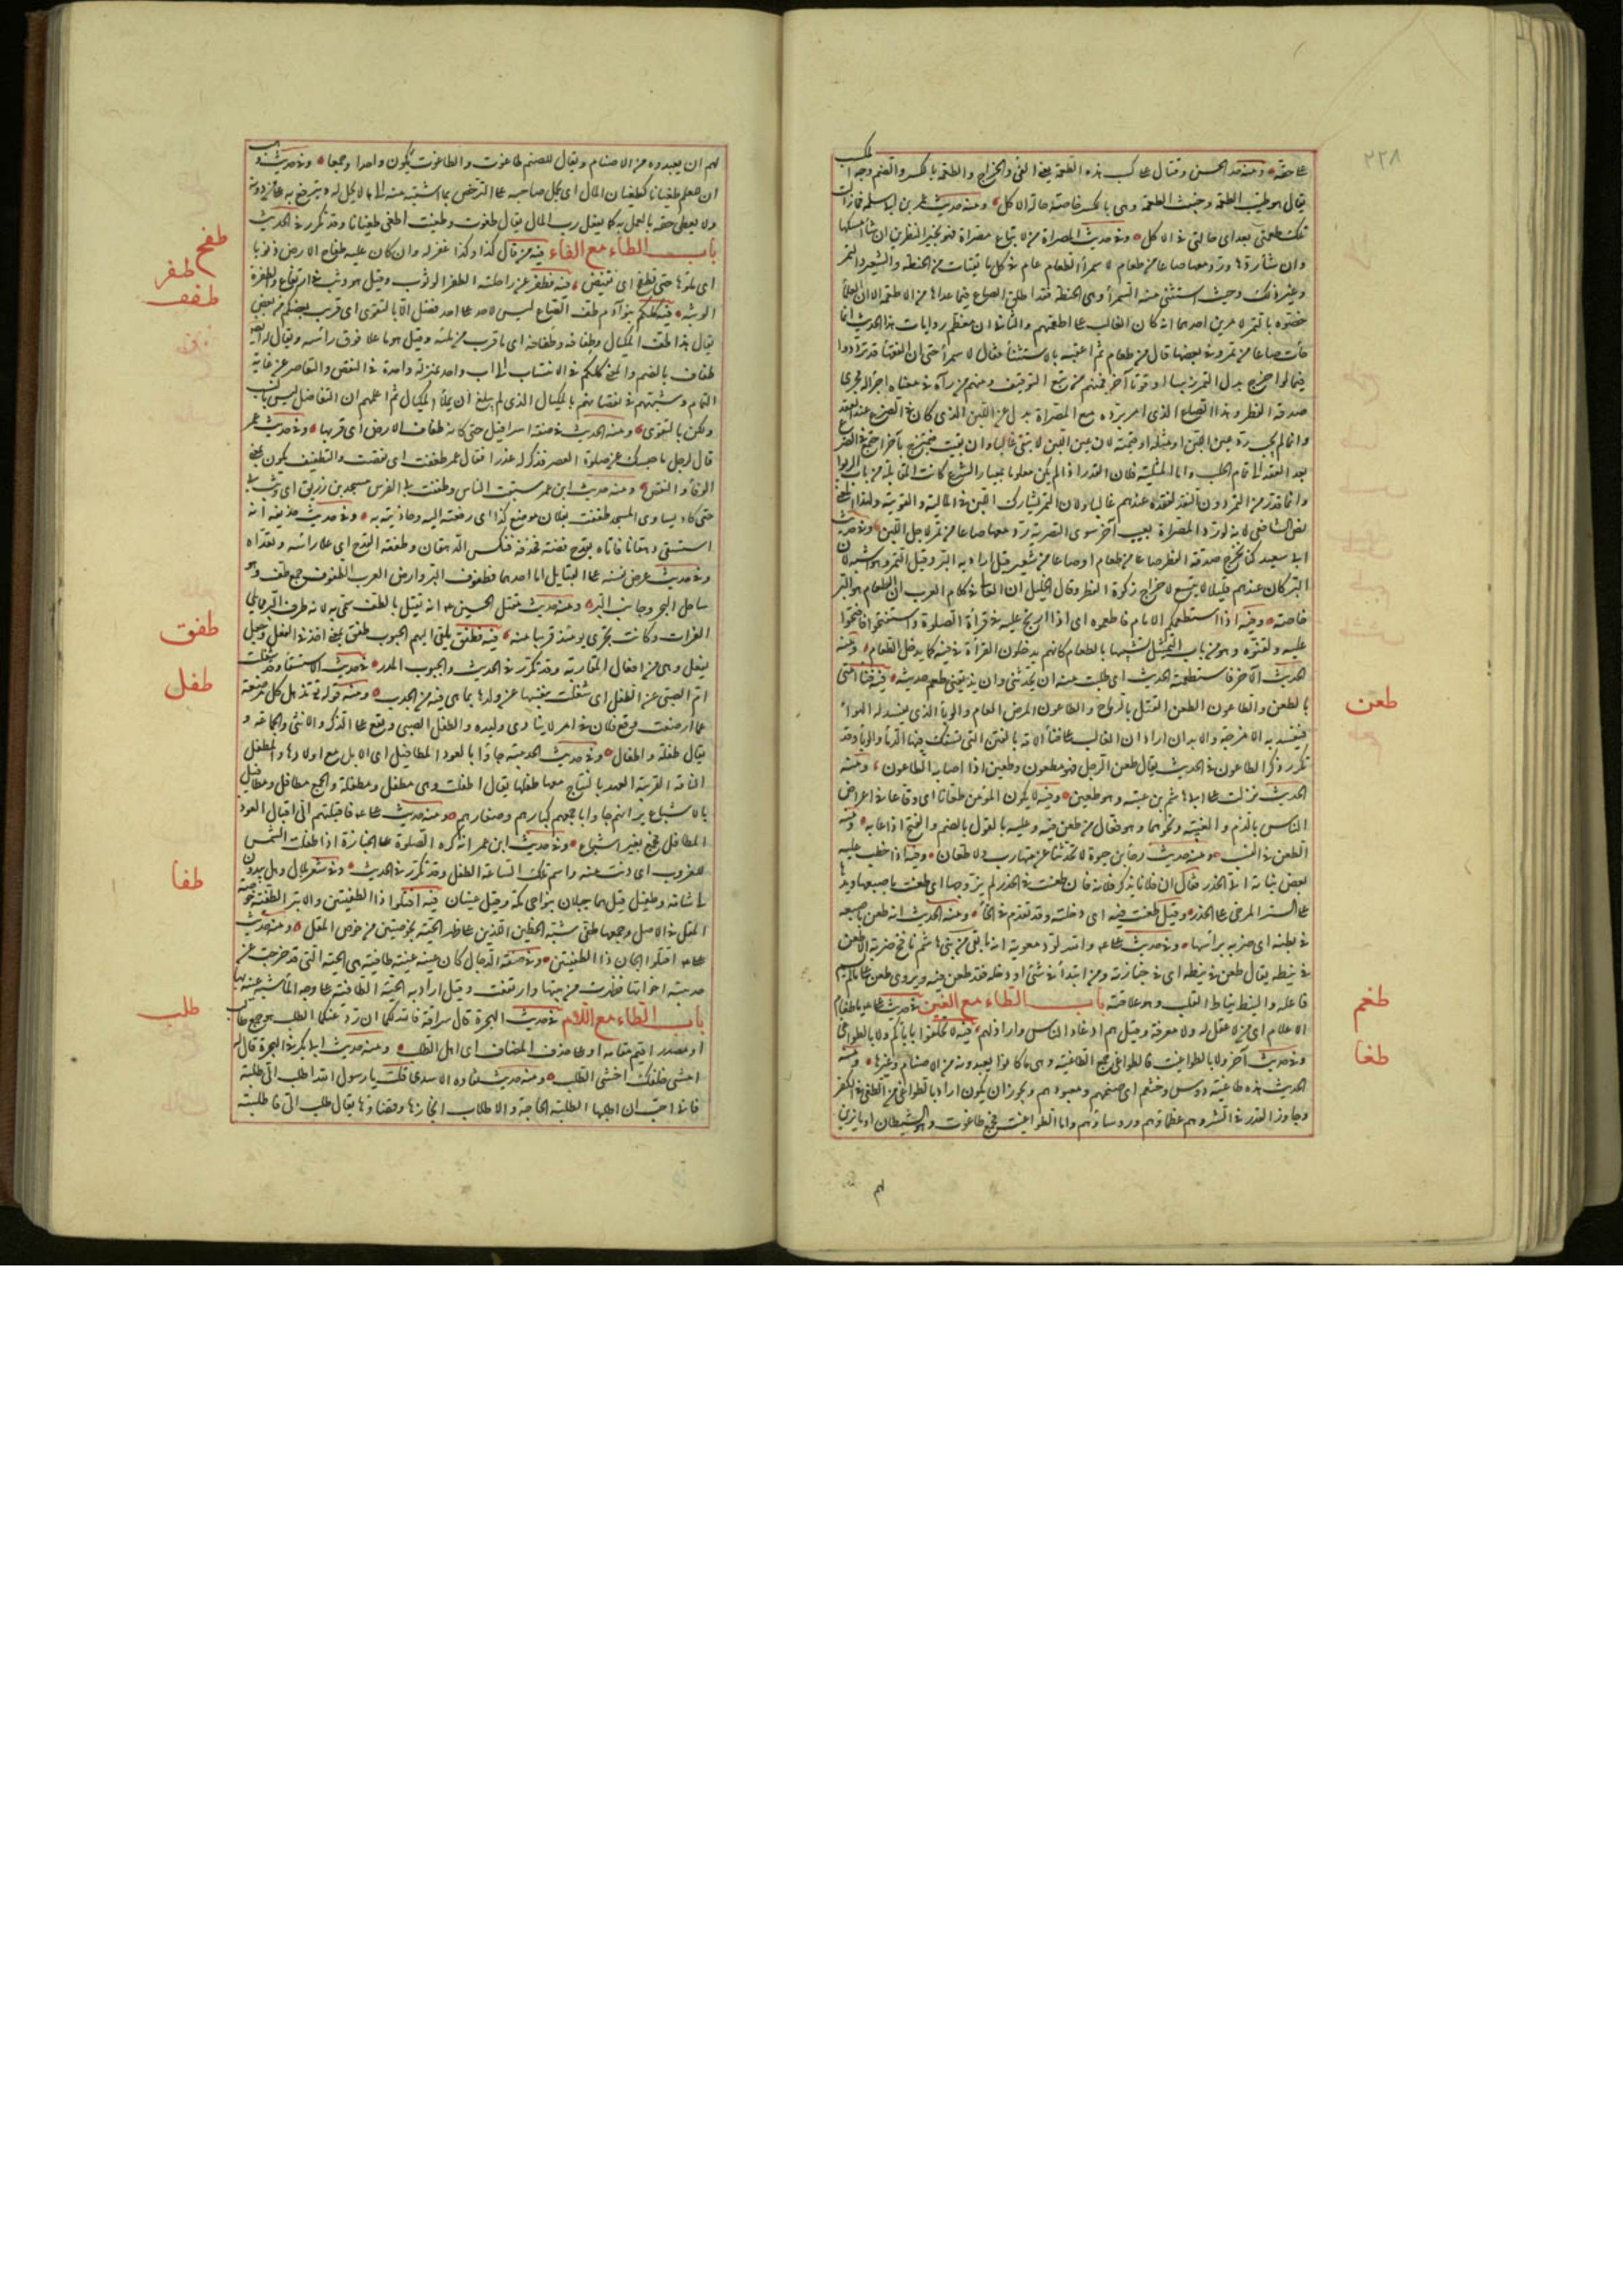 ٢٢٨
على حقه ومنه حديث الحسن وقتال على كسب هذه الطعمة يعنى الفىء والخراج والطعمة بالكسر والضم وجه المكسب
يقال هو طيب الطعمة وخبيث الطعمة وهى بالكسر خاصة حالة الاكل ومنه حديث عمر بن ابى سلمة فما زالت
تلك طعمتى بعد اى حالتى فى الاكل وفى حديث المصراة من ابتاع مصراة فهو بخير النظرين ان شاء امسكها
وان شاء ردها ورد معها صاعا من طعام لا سمراء الطعام عام فى كل ما يقتات من الحنطة والشعير والتمر
وغير ذلك وحيث استثنى منه السمراء وهى الحنطة فقد اطلق الصاع فيما عداها من الاطعمة الا ان العلماء
خصوه بالتمر لامرين احدهما انه كان الغالب على اطعمتهم والثانى ان معظم روايات هذا الحديث انما
جاءت صاعا من تمر وفى بعضها قال من طعام ثم اعقبه بالاستثناء فقال لا سمراء حتى ان الفقهاء قد ترددوا
فيما لو اخرج بدل التمر زبيبا او قوتا آخر فمنهم من تبع التوقيف ومنهم من رآه فى معناه اجراء له مجرى
صدقة الفطر وهذا الصاع الذى امر برده مع المصراة بدل عن اللبن الذى كان فى الضرع عند العقد
وانما لم يجب رد عين اللبن او مثله او قيمته لان عين اللبن لا تبقى غالبا وان بقيت فتمتزج بآخر اجتمع فى الضرع
بعد العقد الى تمام الحلب واما المثلية فلان القدر اذا لم يكن معلوما بمعيار الشرع كانت المقابلة من باب الربوا
وانما قدر من التمر دون النقد لفقده عندهم غالبا ولان التمر يشارك اللبن فى المالية والقوتية ولهذا المعنى
نص الشافعى لانه لو رد المصراة بعيب آخر سوى التصرية رد معها صاعا من تمر لاجل اللبن وفى حديث
ابى سعيد كنا نخرج صدقة الفطر صاعا من طعام او صاعا من شعير قيل اراد به البر وقيل التمر وهو اشبه لان
البر كان عندهم قليلا لا يتسع لاخراج زكوة الفطر وقال الخليل ان العالى فى كلام العرب ان الطعام هو البر
خاصة وفيه اذا استطعمكم الامام فاطعموه اى اذا ارتج عليه فى قراءة الصلوة واستفتحكم فافتحوا
عليه ولقنوه وهو من باب التمثيل تشبيها بالطعام كانهم يدخلون القراءة فى فيه كما يدخل الطعام ومنه
الحديث الآخر فاستطعمته الحديث اى طلبت منه ان يحدثنى وان يذيقنى طعم حديثه فيه فناء امتى
بالطعن والطاعون الطعن القتل بالرماح والطاعون المرض العام والوباء الذى يفسد له الهواء
فيفسد به الامزجة والابدان اراد ان الغالب على فناء الامة بالفتن التى تسفك فيها الدماء والوباء وقد
تكرر ذكر الطاعون فى الحديث يقال طعن الرجل فهو مطعون وطعين اذا اصابه الطاعون ومنه
الحديث نزلت على ابى هاشم بن عتبة وهو طعين وفيه لا يكون المؤمن طعانا اى وقاعا فى اعراض
الناس بالذم والغيبة ونحوهما وهو فعال من طعن فيه وعليه بالقول بالضم والفتح اذا عابه ومنه
الطعن فى النسب ومنه حديث رجاء بن حيوة لا تحدثنا عن متهارت ولا طعان وفيه اذا خطب اليه
بعض بناته اتى الخدر فقال ان فلانا يذكر فلانة فان طعنت فى الخدر لم يزوجها اى طعنت باصبعها ويدها
على الستر المرخى على الخدر وقيل طعنت فيه اى دخلته وقد تقدم فى الخاء ومنه الحديث انه طعن باصبعه
فى بطنه اى ضربه برأسها وفى حديث على والله لود معوية انه ما بقى من بنى هاشم نافخ ضرمة الا طعن
فى نيطه يقال طعن فى نيطه اى فى جنازته ومن ابتدأ فى شىء او دخله فقد طعن فيه ويروى طعن على ما لم يسم
فاعله والنيط نياط القلب وهو علاقته باب الطاء مع الغين فى حديث على يا طغام
الاحلام اى من لا عقل له ولا معرفة وقيل هم اوغاد الناس واراذلهم فيه لا تحلفوا بابائكم ولا بالطواغى
وفى حديث آخر ولا بالطواغيت فالطواغى جمع الطاغية وهى ما كانوا يعبدونه من الاصنام وغيرها ومنه
الحديث هذه طاغية دوس وخثعم اى صنمهم ومعبودهم ويجوز ان يكون اراد بالطواغى من الطغى فى الكفر
وجاوز القدر فى الشر وهم عظماؤهم ورؤساؤهم واما الطواغيت فجمع طاغوت وهو الشيطان او ما يزين
لهم
طعن
طغم
طغا
لهم ان يعبدوه من الاصنام ويقال للصنم طاغوت والطاغوت يكون واحدا وجمعا وفى حديث وهب
ان للعلم طغيانا كطغيان المال اى يحمل صاحبه على الترخص بما اشتبه منه الى ما لا يحل له ويترفع به على من دونه
ولا يعطى حقه بالعمل به كما يفعل رب المال يقال طغوت وطغيت اطغى طغيانا وقد تكرر فى الحديث
باب الطاء مع الفاء فيه من قال كذا وكذا غفر له وان كان عليه طفاح الارض ذنوبا
اى ملؤها حتى تطفح اى تفيض فيه فطفر عن راحلته الطفر الوثوب وقيل هو وثب فى ارتفاع والطفرة
الوثبة فيه كلكم بنو آدم طف الصاع ليس لاحد على احد فضل الا بالتقوى اى قريب بعضكم من بعض
يقال هذا طف المكيال وطفافه وطفافه اى ما قرب من ملئه وقيل هو ما علا فوق رأسه ويقال له ايضا
طفاف بالضم والمعنى كلكم فى الانتساب الى اب واحد بمنزلة واحدة فى النقص والتقاصر عن غاية
التمام وشبههم فى نقصانهم بالمكيال الذى لم يبلغ ان يملأ المكيال ثم اعلمهم ان التفاضل ليس بالنسب
ولكن بالتقوى ومنه الحديث فى صفة اسرافيل حتى كانه طفاف الارض اى قربها وفى حديث عمر
قال لرجل ما حبسك عن صلوة العصر فذكر له عذرا فقال عمر طففت اى نقصت والتطفيف يكون بمعنى
الوفاء والنقص ومنه حديث ابن عمر سبقت الناس وطففت بى الفرس مسجد بنى زريق اى وثب بى
حتى كاد يساوى المسجد طففت بفلان موضع كذا اى رفعته اليه وحاذيته به وفى حديث حذيفة انه
استسقى دهقانا فاتاه بقدح فضة فحذفه فنكس الدهقان وطففه القدح اى علا رأسه وتعداه
وفى حديث عرض نفسه على القبائل اما احدهما فطفوف البر وارض العرب الطفوف جمع طف وهو
ساحل البحر وجانب البر ومنه حديث مقتل الحسين انه يقتل بالطف سمى به لانه طرف البر مما يلى
الفرات وكانت تجرى يومئذ قريبا منه فيه فطفق يلقى اليهم الجبوب طفق بمعنى اخذ فى الفعل وجعل
يفعل وهى من افعال المقاربة وقد تكرر فى الحديث والجبوب المدر فى حديث الاستسقاء وقد شغلت
ام الصبى عن الطفل اى شغلت بنفسها عن ولدها بما هى فيه من الجدب ومنه قوله تعالى تذهل كل مرضعة
عما ارضعت وقع فلان فى امر لا ينادى وليده والطفل الصبى ويقع على الذكر والانثى والجماعة و
يقال طفلة واطفال وفى حديث الحديبية جاؤا بالعوذ المطافيل اى الابل مع اولادها والمطفل
الناقة القريبة العهد بالنتاج معها طفلها يقال اطفلت وهى مطفل ومطفلة والجمع مطافل ومطافيل
بالاشباع يريد انهم جاؤا باجمعهم كبارهم وصغارهم ومنه حديث على فاقبلتم الى اقبال العوذ
المطافل جمع بغير اشباع وفى حديث ابن عمر انه كره الصلوة على الجنازة اذا طفلت الشمس
للغروب اى دنت منه واسم تلك الساعة الطفل وقد تكرر فى الحديث وفى شعر بلال وهل يبدون
لى شامة وطفيل قيل هما جبلان بنواحى مكة وقيل عينان فيه اقتلوا ذا الطفيتين والابتر الطفية خوصة
المقل فى الاصل وجمعها طفى شبه الخطين اللذين على ظهر الحية بخوصتين من خوص المقل ومنه حديث
على اقتلوا الجان ذا الطفيتين وفى صفة الدجال كان عينه عنبة طافية هى الحبة التى قد خرجت عن
حد نبتة اخواتها فظهرت من بينها وارتفعت وقيل اراد به الحبة الطافية على وجه الماء شبه عينه بها
باب الطاء مع اللام فى حديث الهجرة قال سراقة فالله لكما ان ارد عنكما الطلب هو جمع طالب
او مصدر اقيم مقامه او على حذف المضاف اى اهل الطلب ومنه حديث ابى بكر فى الهجرة قال له
امشى خلفك اخشى الطلب ومنه حديث نقادة الاسدى قلت يا رسول الله اطلب الى طلبة
فانى احب ان اطلبكها الطلبة الحاجة والاطلاب انجازها وقضاؤها يقال طلب الى فاطلبته
طفح
طفر
طفف
طفق
طفل
طفا
طلب